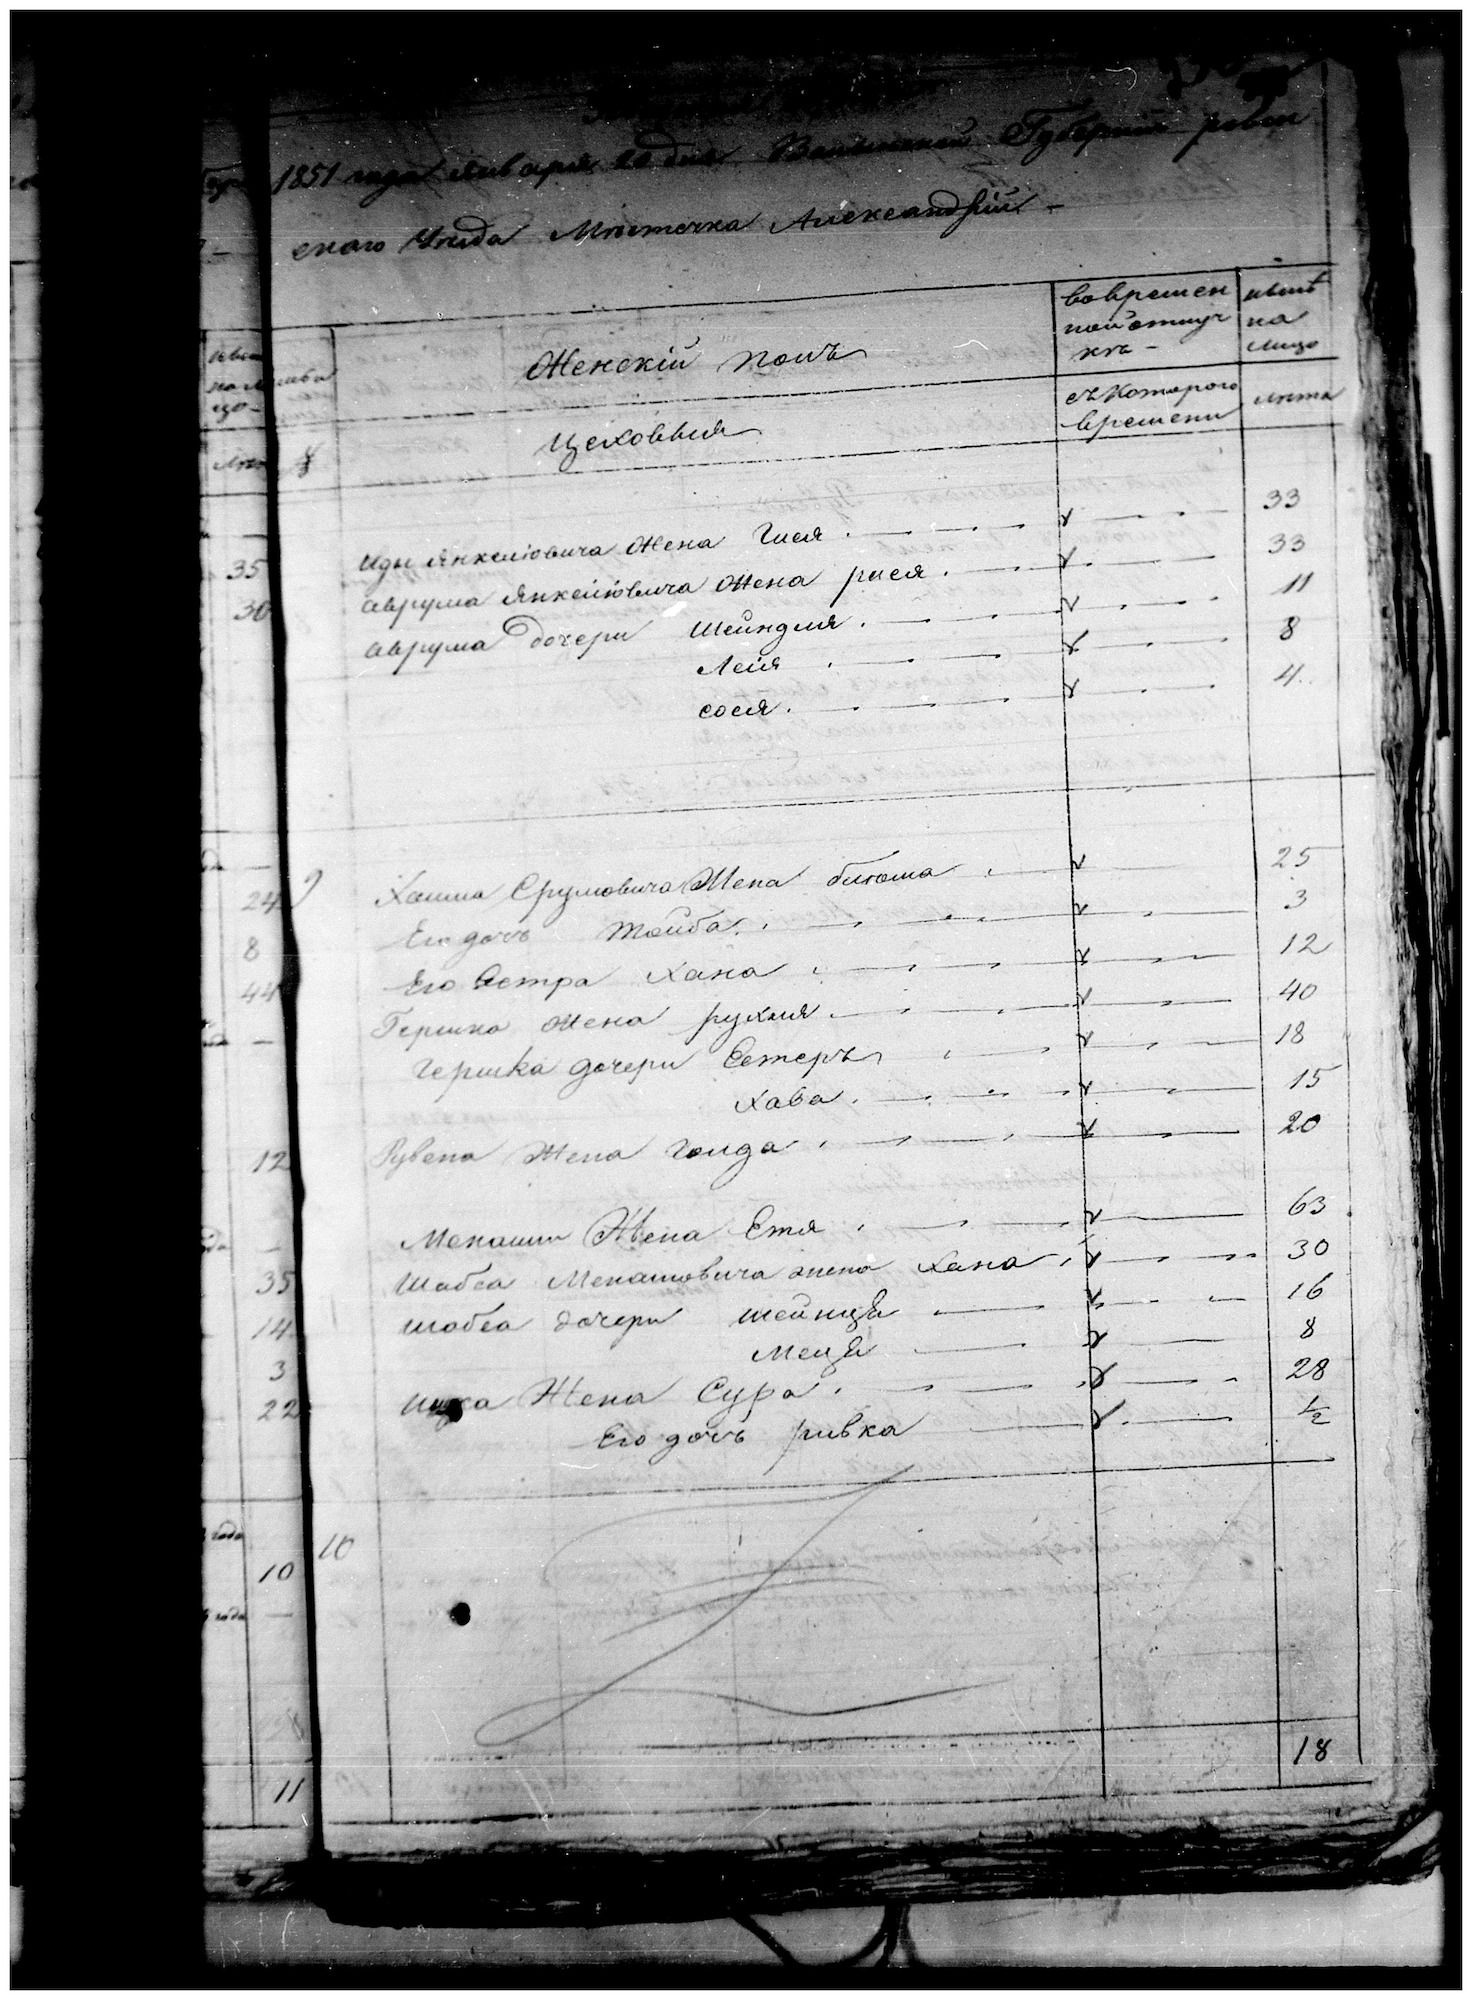 1851 года января 20 дня Волынской Губернии ровен
скаго Уезда Местечка Александрии -
Женский полъ
во времен
ной отлуч
ке -
ныне
на
лицо
Цеховыя
съ которого
времени
лета
8
Иды Янкелiовича Жена Гися 33
Аврума Янкелiовича Жена рися 33
Аврума дочери Шейндля 11
Лейя 8
сося 4
9
Хаима Срулiовича Жена блюма 25
Его дочь Тойба 3
Его Сестра Хана 12
Гершка Жена рухля 40
Гершка дочери Естеръ 18
Хава 15
Рувена Жена Голда 20
Менаши Жена Етя 63
Шабса Менашовича жена Хана 30
Шабса дочери Шейндя 16
8
Ицка Жена Сура 28
Его дочь ривка 1/2
10
18
35
30
24
8
44
12
35
14
3
22
года
10
года
11